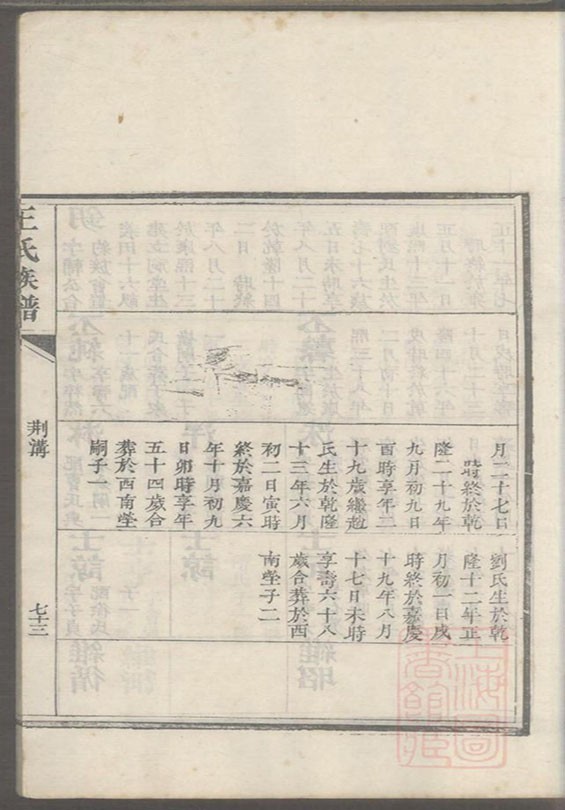 月二十七日
時終於乾
隆二十九年
九月初九日
酉時享年三
十九歲繼趙
氏生於乾隆
十三年六月
初二日寅時
終於嘉慶六
年十月初九
日卯時享年
五十四歲合
葬於西南塋
嗣子一
劉氏生於乾
隆十二年正
月初一日戌
時終於嘉慶
十九年八月
十七日未時
享壽六十八
歲合葬於西
南塋子二
王氏族譜
荆溝
七十三
上海圖
書館藏